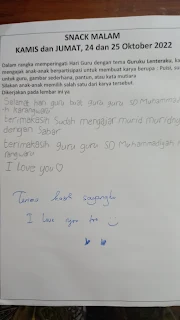 SNACK MALAM
KAMIS dan JUMAT, 24 dan 25 Oktober 2022
Dalam rangka memperingati Hari Guru dengan tema Guruku Lenteraku,
mengajak anak-anak berpartisipasi untuk membuat karya berupa : Puisi,
untuk guru, gambar sederhana, pantun, atau kata mutiara
Silakan anak-anak memilih salah satu dari karya tersebut
Dikerjakan pada lembar ini ya
Selamat hari guru buat guru guru SD Muhammad
terimakasih sudah mengajar murid murid
dengan sabar
terimakasih guru guru SD Muhammadiyah
I love you ♡
Terima kasih sayangku
I love you too